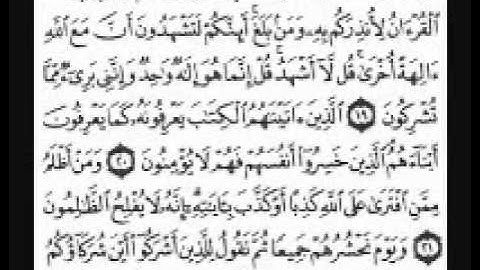 ٱلْقُرْءَانُ لِأُنذِرَكُم بِهِۦ وَمَنۢ بَلَغَ ۚ أَئِنَّكُمْ لَتَشْهَدُونَ أَنَّ مَعَ ٱللَّهِ
ءَالِهَةً أُخْرَىٰ ۚ قُل لَّآ أَشْهَدُ ۚ قُلْ إِنَّمَا هُوَ إِلَٰهٌ وَٰحِدٌ وَإِنَّنِى بَرِىٓءٌ مِّمَّا
تُشْرِكُونَ ١٩ ٱلَّذِينَ ءَاتَيْنَٰهُمُ ٱلْكِتَٰبَ يَعْرِفُونَهُۥ كَمَا يَعْرِفُونَ
أَبْنَآءَهُمُ ٱلَّذِينَ خَسِرُوٓا۟ أَنفُسَهُمْ فَهُمْ لَا يُؤْمِنُونَ ٢٠ وَمَنْ أَظْلَمُ
مِمَّنِ ٱفْتَرَىٰ عَلَى ٱللَّهِ كَذِبًا أَوْ كَذَّبَ بِـَٔايَٰتِهِۦٓ ۗ إِنَّهُۥ لَا يُفْلِحُ ٱلظَّٰلِمُونَ
٢١ وَيَوْمَ نَحْشُرُهُمْ جَمِيعًا ثُمَّ نَقُولُ لِلَّذِينَ أَشْرَكُوٓا۟ أَيْنَ شُرَكَآؤُكُمُ